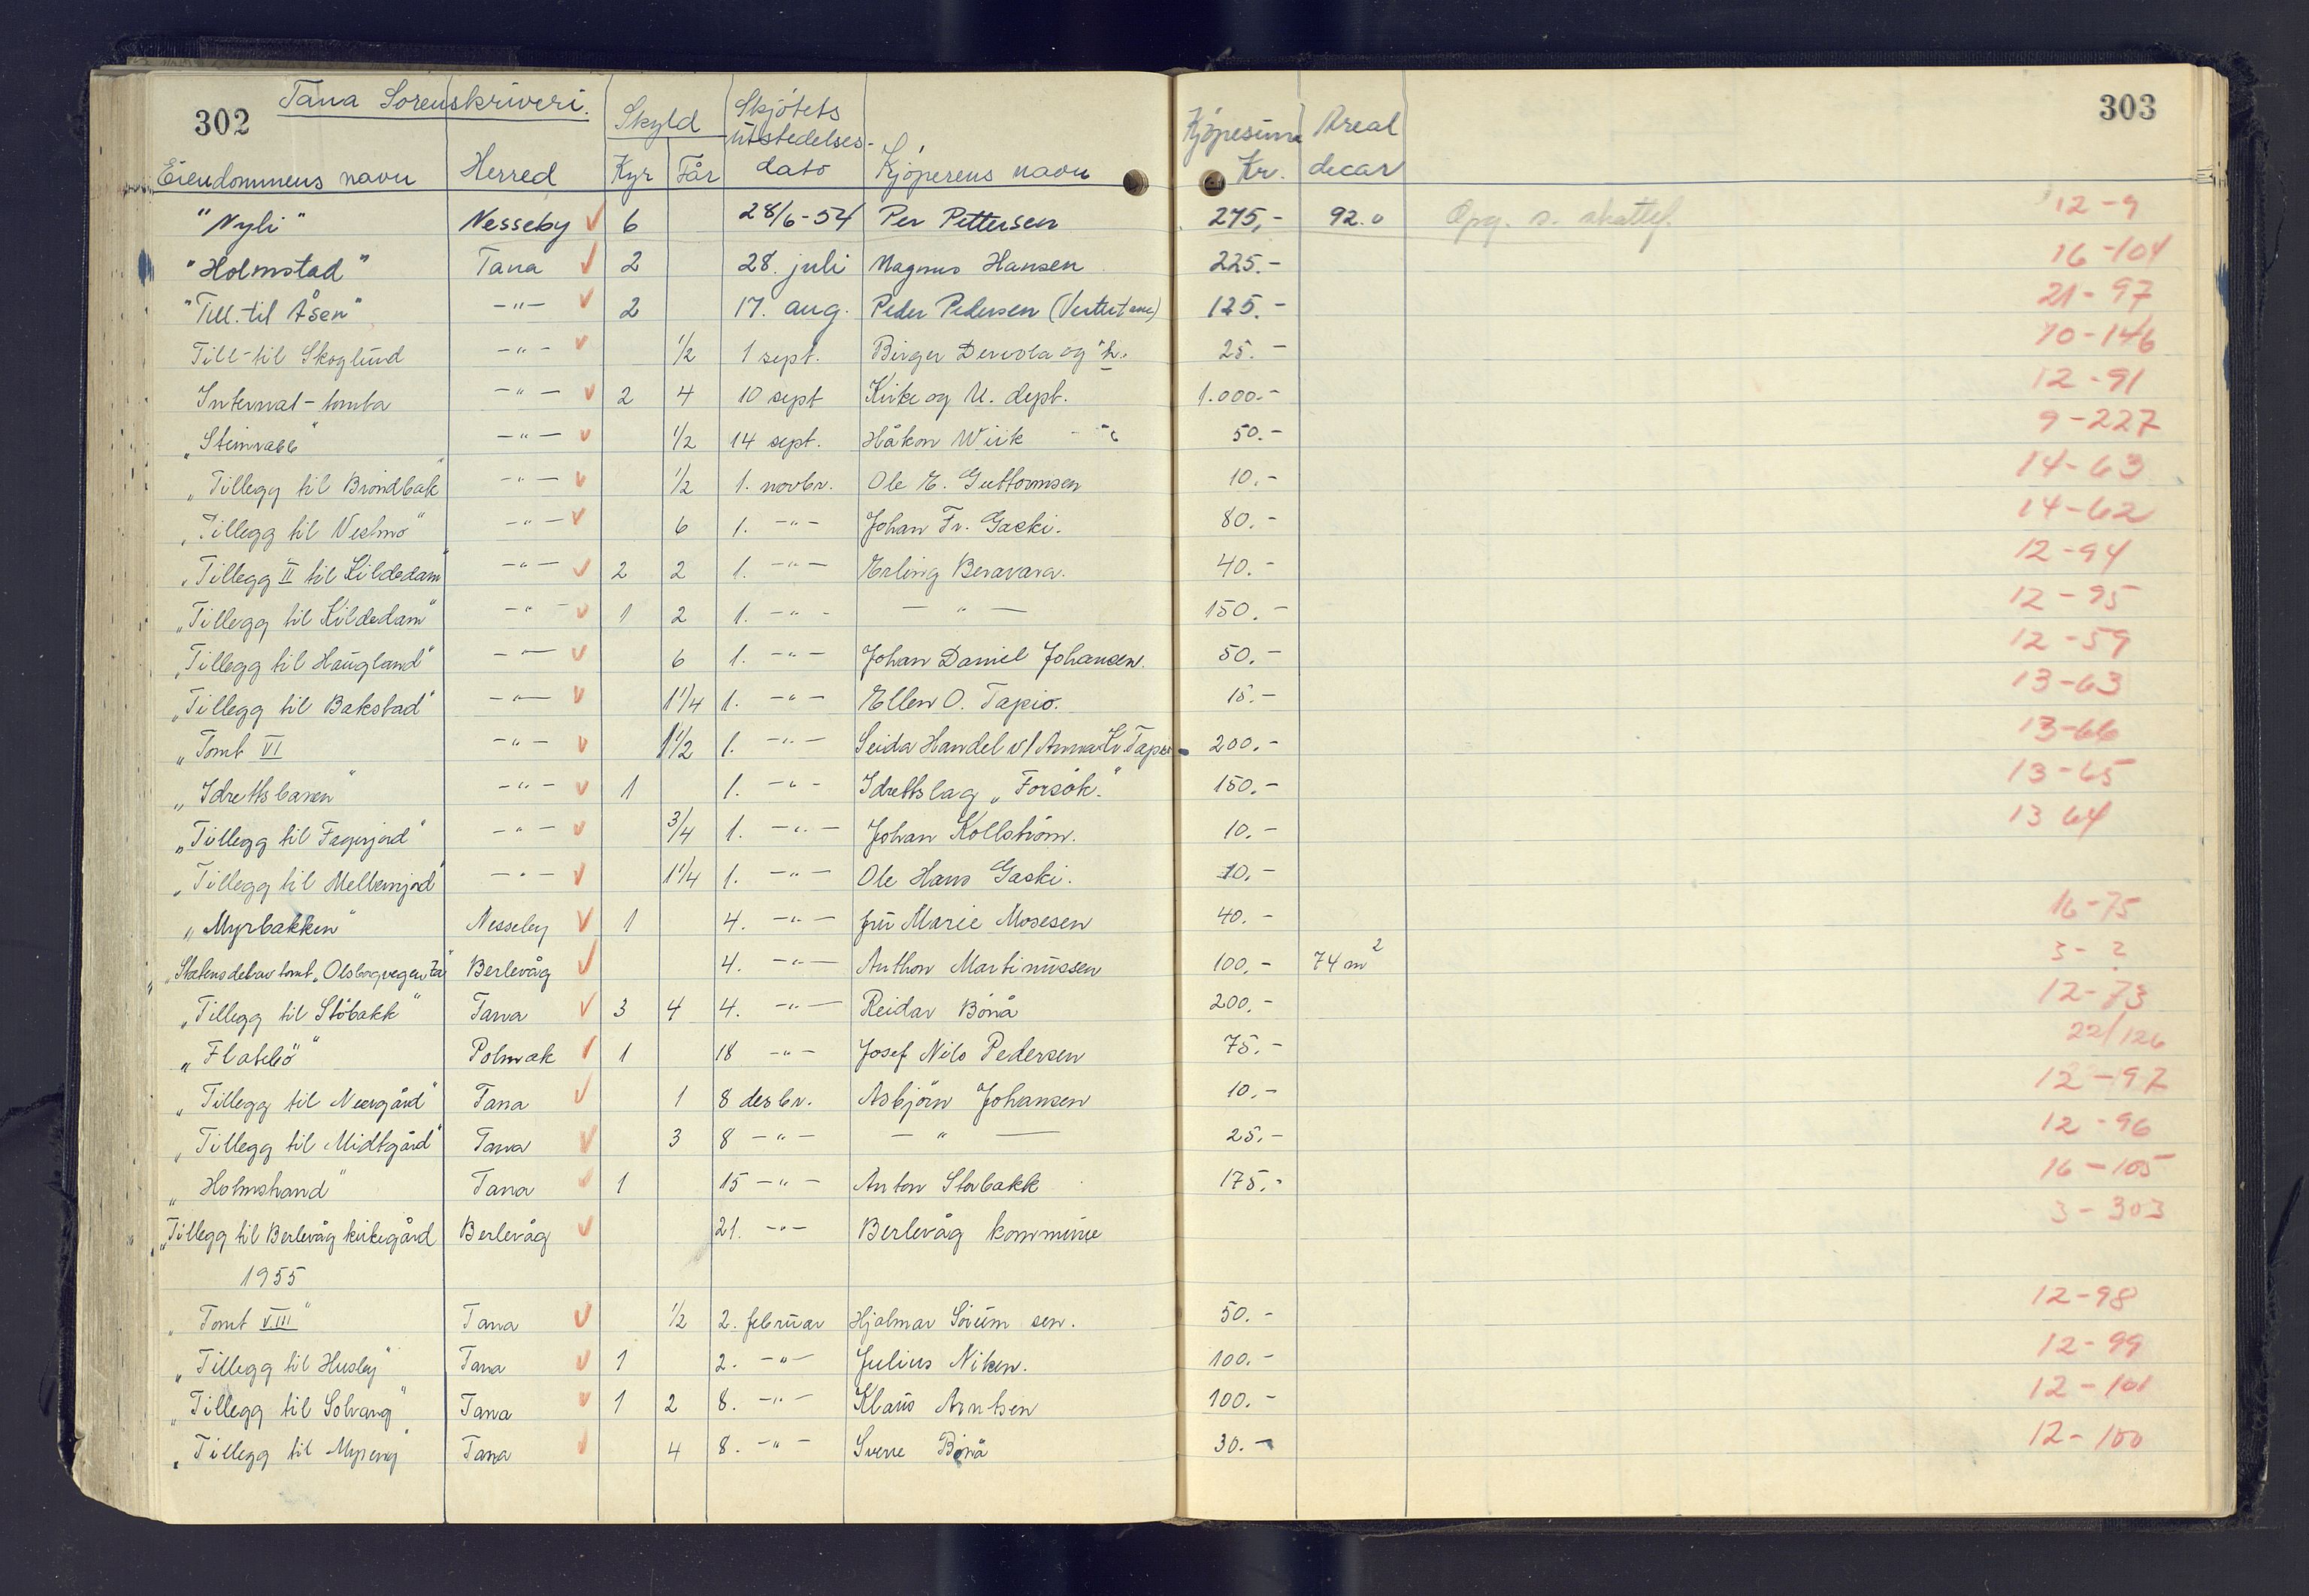 302 Tana Sorenskriveri. 303
Skyld Skjötets utstedelses- Kjöpesum Areal
Eiendommens navn Herred Kyr Får dato Kjöperens navn Kr. decar
"Nyli" Nesseby 6 28/6-54 Per Pettersen 275,- 92.0 Opg. s. skattef. 12-9
"Holmstad" Tana 2 28. juli Magnus Hansen 225.- 16-104
"Till. til Åsen" -"- 2 17. aug. Peder Pedersen (Vestertana) 125.- 21-97
Till-til Skoglund -"- 1/2 1 sept. Birger Dervola og h. 25.- 10-146
Internat-tomta -"- 2 4 10 sept Kirke og U. dept. 1.000.- 12-91
"Steinrabb" -"- 1/2 14 sept. Håkon Wiik 50.- 9-227
"Tillegg til Bröndbak" -"- 1/2 1. novbr. Ole E. Guttormsen 10.- 14-63
"Tillegg til Vestmo" -"- 6 1. -"- Johan Fr. Gaski. 80.- 14-62
"Tillegg II til Kildedam" -"- 2 2 1. -"- Erling Beravara. 40.- 12-94
"Tillegg til Kildedam" -"- 1 2 1. -"- -"- 150.- 12-95
"Tillegg til Haugland" -"- 6 1. -"- Johan Daniel Johansen 50.- 12-59
"Tillegg til Bakstad" -"- 1 1/4 1. -"- Ellen O. Tapio. 15.- 13-63
"Tomt VI -"- 1 1/2 1. -"- Seida Handel v/ Anna Tapio 200.- 13-66
"Idrettsbanen" -"- 1 1. -"- Idrettslag "Forsök." 150.- 13-65
"Tillegg til Fagerjord" -"- 3/4 1. -"- Johan Kollström. 10.- 13 64
"Tillegg til Mellemjord" -"- 1 1/4 1. -"- Ole Hans Gaski. 10.-
"Myrbakken" Nesseby 1 4. -"- fru Marie Mosesen 40.- 16-75
"Statens debav tomt, Olsbogvegen 7a" Berlevåg 4. -"- Anthon Martinussen 100,- 74 m2 3-2
"Tillegg til Stöbakk" Tana 3 4 4. -"- Reidar Bönå 200.- 12-73
"Flatebö" Polmak 1 18 -"- Josef Nils Pedersen 75.- 22/126
"Tillegg til Neergård" Tana 1 8 desbr. Asbjörn Johansen 10.- 12-97
"Tillegg til Midtgård" Tana 3 8 -"- -"- 25.- 12-96
"Holmshand" Tana 1 15 -"- Anton Storbakk 175.- 16-105
"Tillegg til Berlevåg kirkegård Berlevåg 21. -"- Berlevåg kommune 3-303
1955
"Tomt VIII" Tana 1/2 2. februar Hjalmar Sörum sen. 50.- 12-98
"Tillegg til Husby" Tana 1 2. -"- Julius Niken. 100.- 12-99
"Tillegg til Solvang" Tana 1 2 8. -"- Klaus Arntsen 100.- 12-101
"Tillegg til Myreng" Tana 4 8. -"- Sverre Bönå 30.- 12-100